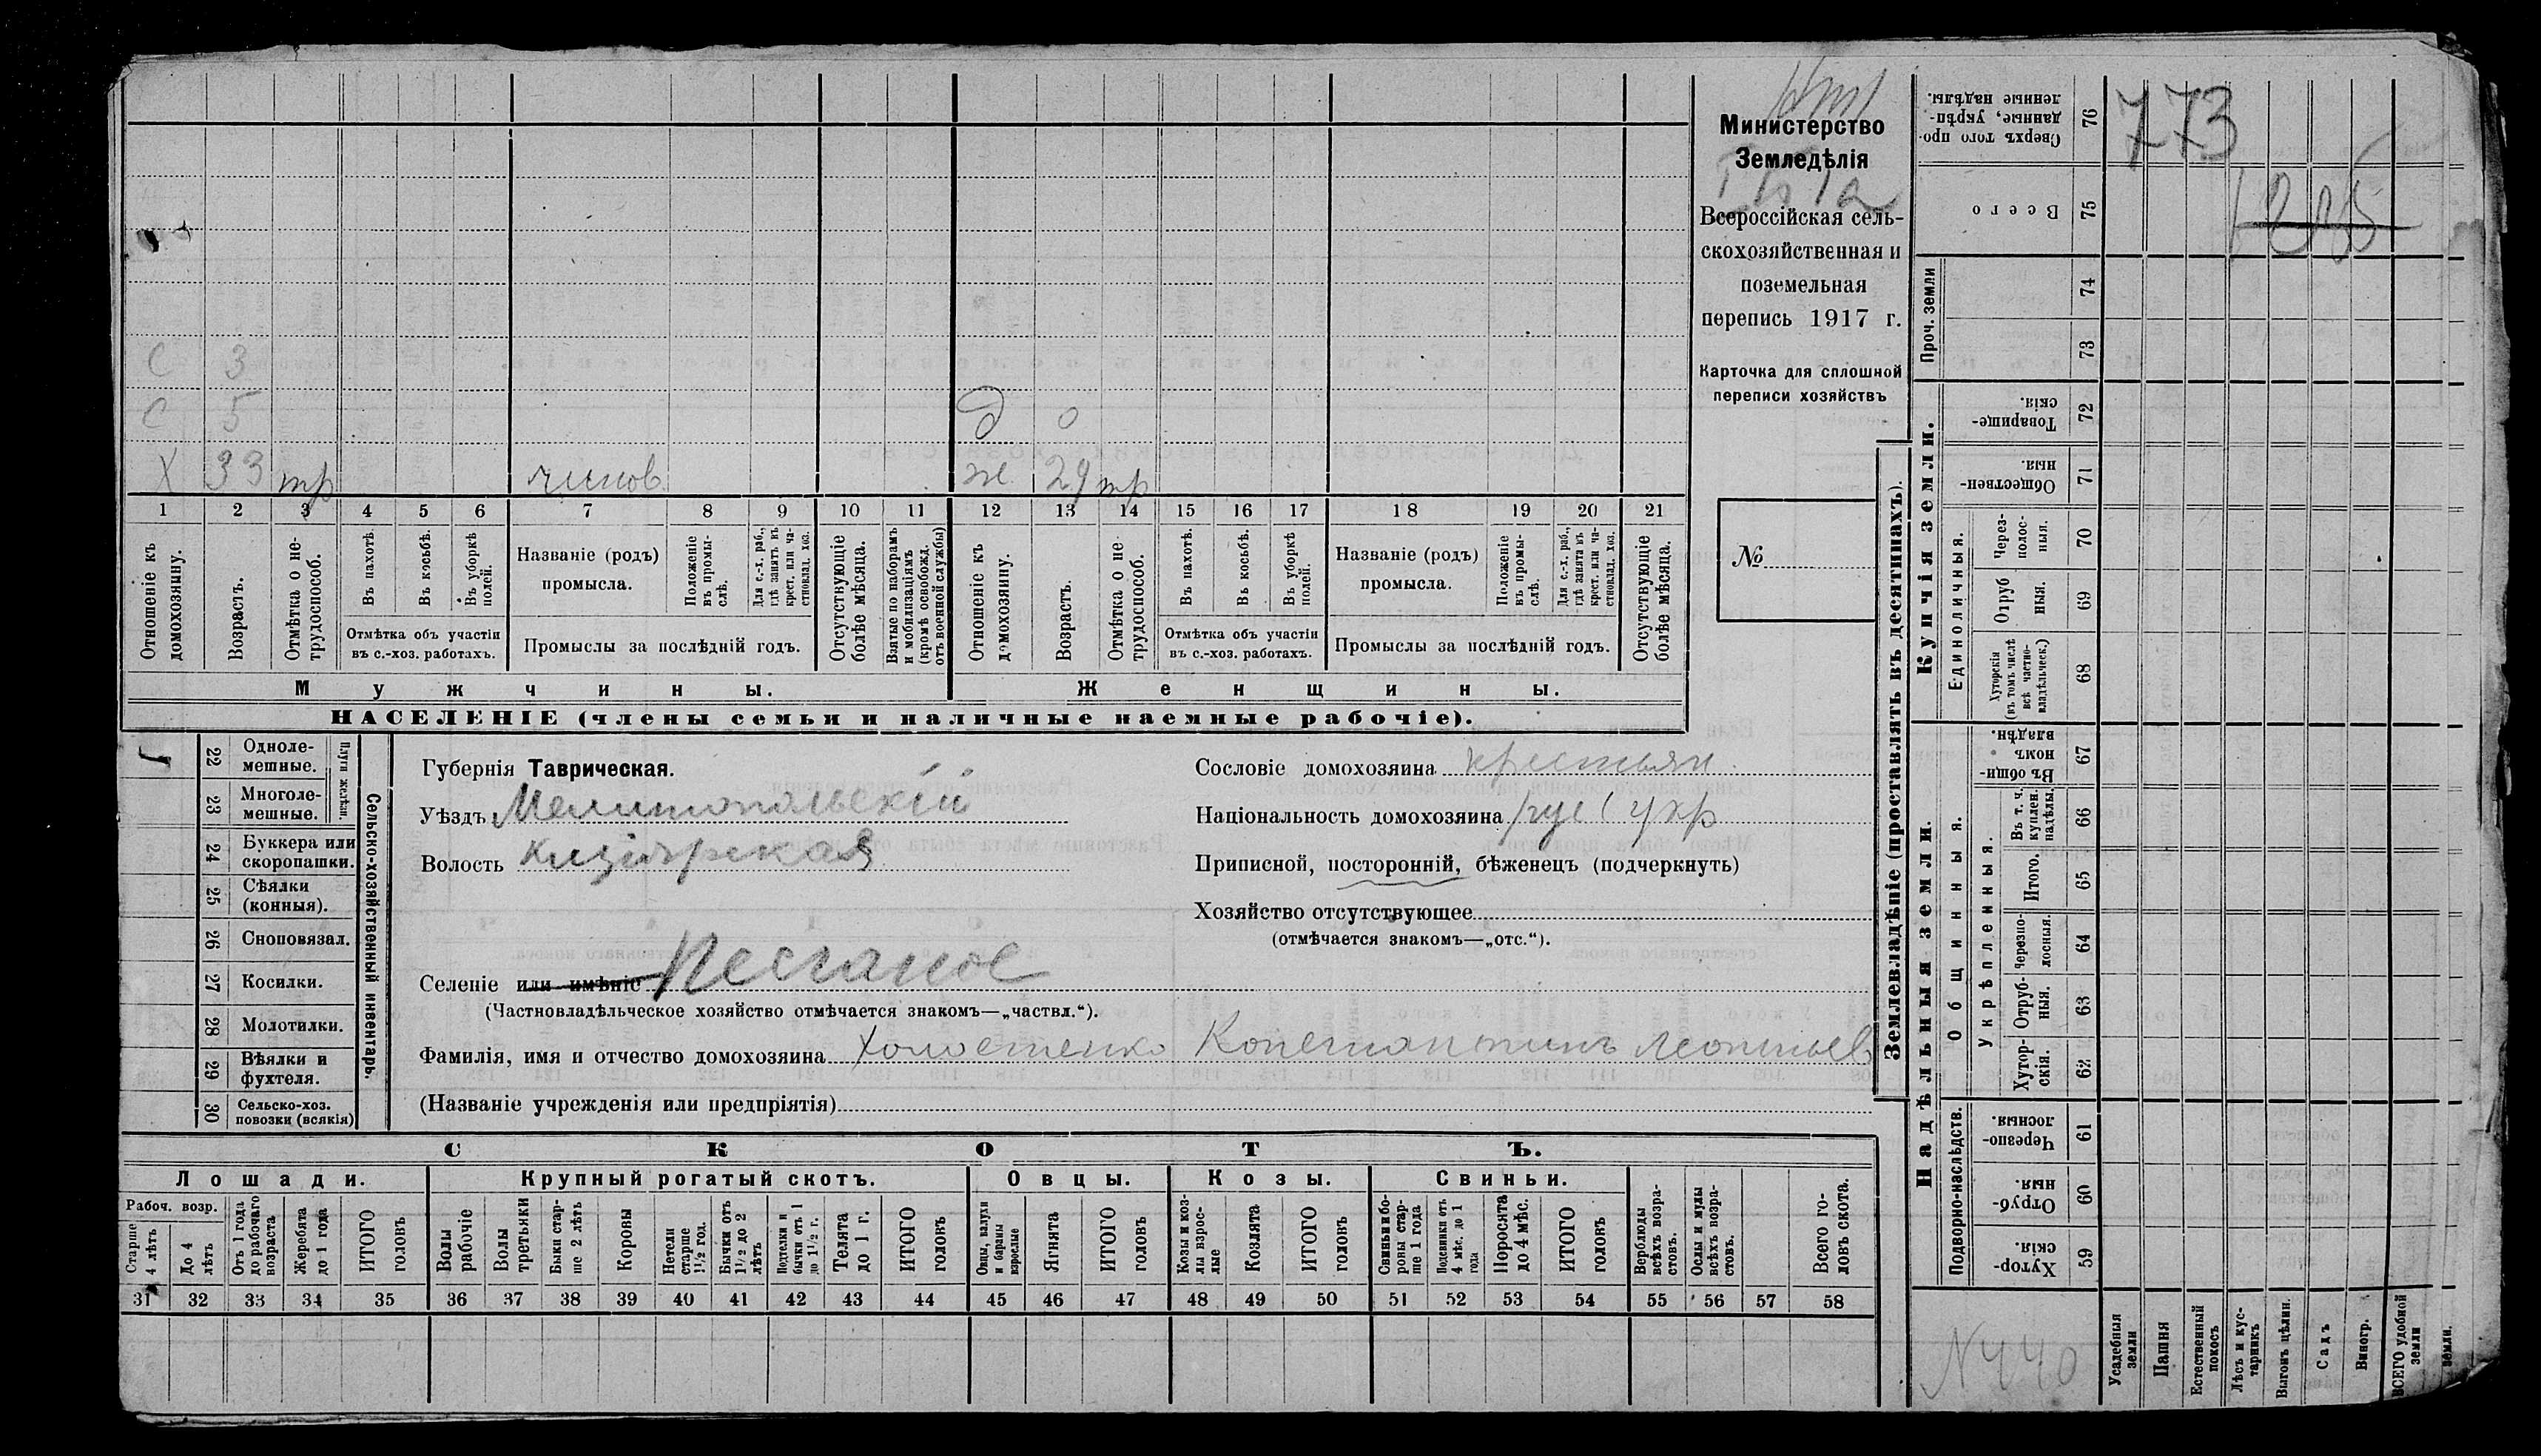 С 3
С 5 д 0
Х 33 тр чинов. ж. 29 тр
1 2 3 4 5 6 7 8 9 10 11 12 13 14 15 16 17 18 19 20 21
Отношеніе къ домохозяину.
Возрастъ.
Отмѣтка о не-
трудоспособ.
Въ пахотѣ.
Въ косьбѣ.
Въ уборкѣ полей.
Отмѣтка объ участіи
въ с.-хоз. работахъ.
Названіе (родъ)
промысла.
Положеніе въ промы-
слѣ.
Для с.-х. раб., гдѣ занятъ въ крест. или ча-
стновлад. хоз.
Промыслы за послѣдній годъ.
Отсутствующіе болѣе мѣсяца.
Взятые по наборамъ и мобилизаціямъ (кромѣ освобожд. отъ военной службы)
Отношеніе къ домохозяину.
Возрастъ.
Отмѣтка о не
трудоспособ.
Въ пахотѣ.
Въ косьбѣ.
Въ уборкѣ полей.
Отмѣтка объ участіи
въ с.-хоз. работахъ.
Названіе (родъ)
промысла.
Положеніе въ промы-
слѣ.
Для с.-х. раб., гдѣ занята въ крест. или ча-
стновлад. хоз.
Промыслы за послѣдній годъ.
Отсутствующіе болѣе мѣсяца.
Мужчины.
Женщины.
НАСЕЛЕНІЕ (члены семьи и наличные наемные рабочіе).
Министерство
Земледѣлія
Всероссійская сель-
скохозяйственная и
поземельная
перепись 1917 г.
Карточка для сплошной
переписи хозяйствъ
№
22 Одноле-
мешные.
23 Многоле-
мешные.
Плуги желѣзн.
24 Буккера или
скоропашки.
25 Сѣялки
(конныя).
26 Сноповязал.
27 Косилки.
28 Молотилки.
29 Вѣялки и
фухтеля.
30 Сельско-хоз.
повозки (всякія)
Сельско-хозяйственный инвентарь.
Губернія Таврическая.
Уѣздъ Мелитопольскій
Волость Кизіярская
Сословіе домохозяина крестьян.
Національность домохозяина рус (укр
Приписной, посторонній, бѣженецъ (подчеркнуть)
Хозяйство отсутствующее
(отмѣчается знакомъ—„отс.“).
Селеніе или имѣніе Песчаное
(Частновладѣльческое хозяйство отмѣчается знакомъ—„частвл.“).
Фамилія, имя и отчество домохозяина Холостенко Константинъ Леонтьев
(Названіе учрежденія или предпріятія)
СКОТЪ.
Лошади.
Крупный рогатый скотъ.
Овцы.
Козы.
Свиньи.
Рабоч. возр.
Старше 4 лѣтъ
До 4 лѣтъ
Отъ 1 года до рабочаго возраста
Жеребята до 1 года
ИТОГО головъ
Волы рабочіе
Волы третьяки
Быки стар-
ше 2 лѣтъ
Коровы
Нетели старше 1½ год.
Бычки отъ 1½ до 2 лѣтъ
Подтелки и бычки отъ 1 до 1½ г.
Телята до 1 г.
ИТОГО головъ
Овцы, валухи и бараны взрослые
Ягнята
ИТОГО головъ
Козы и коз-
лы взрос-
лые
Козлята
ИТОГО головъ
Свиньи бо-
роны стар-
ше 1 года
Подсвинки отъ 4 мѣс. до 1 года
Поросята до 4 мѣс.
ИТОГО головъ
Верблюды всѣхъ возра-
стовъ.
Ослы и мулы всѣхъ возра-
стовъ.
Всего го-
ловъ скота.
31 32 33 34 35 36 37 38 39 40 41 42 43 44 45 46 47 48 49 50 51 52 53 54 55 56 57 58
Землевладѣніе (проставлять въ десятинахъ).
Купчія земли.
Надѣльныя земли.
773
76 Сверхъ того про-
данные, укрѣп-
ленные надѣлы.
75 Всего
Проч. земли
74
73
72 Товарище-
скія.
71 Обществен-
ныя.
Единоличныя.
70 Черезполос-
ныя.
69 Отруб
ныя.
68 Хуторскія (въ томъ числѣ всѣ частно-
владѣльческ.)
67 Въ общин-
номъ владѣн.
Общинныя.
Укрѣпленныя.
66 Въ т. ч. куплен. надѣлы.
65 Итого.
64 Черезпо-
лосныя.
63 Отруб-
ныя.
62 Хутор-
скія.
Подворно-наслѣдств.
61 Черезпо-
лосныя.
60 Отруб-
ныя.
59 Хутор-
скія.
N 440
Усадебныя земли
Пашня
Естественный покосъ
Лѣсъ и кус-
тарникъ
Выгонъ цѣлин.
Садъ
Виногр.
ВСЕГО удобной земли
земли.